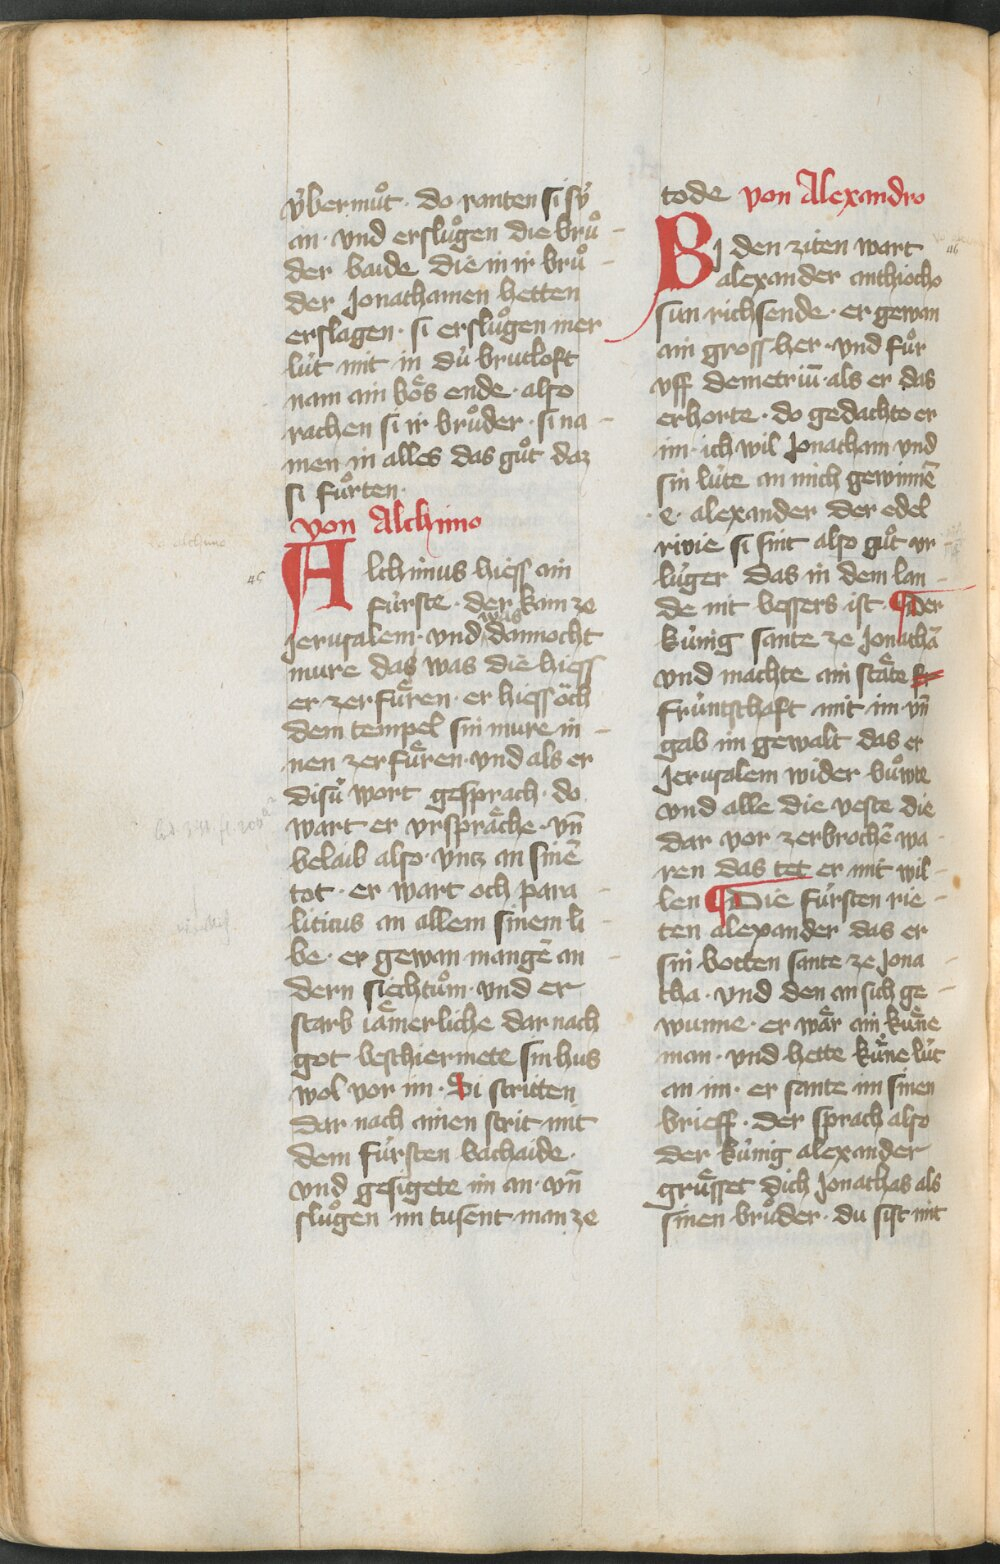 v̈bermuͦt · do ranten si sÿ
an · vnd ersluͦgen die bruͦ -
der baide die in ir bruͦ -
der Jonathamen hetten
erslagen · si ersluͦgen mer
lüt mit in dü brutloft
nam ain boͤs ende · also
rachen si ir bruͦder · si na -
men in alles das guͦt daz
si fuͦrten ·
von Alchimo
Alchimus hiess ain
fürste · der kam ze
Jerusalem · vnd was dannocht
mure das was die hiess
er zerfuͤren · er hiess och
dem tempel sin mure in -
nen zerfuͤren · vnd als er
disü wort gesprach · do
wart er vrspraͤche · vn̄
belaib also · vntz an sinē
tot · er wart och para -
liticus an allem sinem li -
be · er gewan mangē an -
dern siechtuͦm · vnd er
starb iaͤmerliche dar nach
got beschiermete sin hus
wol vor im · Si stritten
dar nach ainen strit mit
dem fürsten bachaide ·
vnd gesigete im an · vn̄
sluͦgen im tusent man ze
tode von Alexandro
Bi den ziten wart
alexander anthiocho
sun richsende · er gewan
ain gross her · vnd fuͦr
vff demetriū · als er das
erhorte · do gedachte er
im · ich wil Jonatham vnd
sin lüte an mich gewinnē
· e · alexander der edel
rivie si sint also guͦt vr -
lüger das in dem lan -
de nit bessers ist · Der
künig sante ze Jonathā
vnd machte ain staͤte
früntschaft mit im vn̄
gab im gewalt das er
Jerusalem wider buͦwte
vnd alle die veste die
dar vor zerbrochē wa -
ren das tet er mit wil -
len Die fürsten rie -
ten alexander das er
sin botten sante ze Jona -
tha · vnd den an sich ge -
wunne · er waͤr ain kuͤne
man · vnd hette kuͤne lüt
an im · er sante im sinen
brieff · der sprach also
der künig alexander
gruͤsset dich Jonathas als
sinen bruͦder · du sist mit